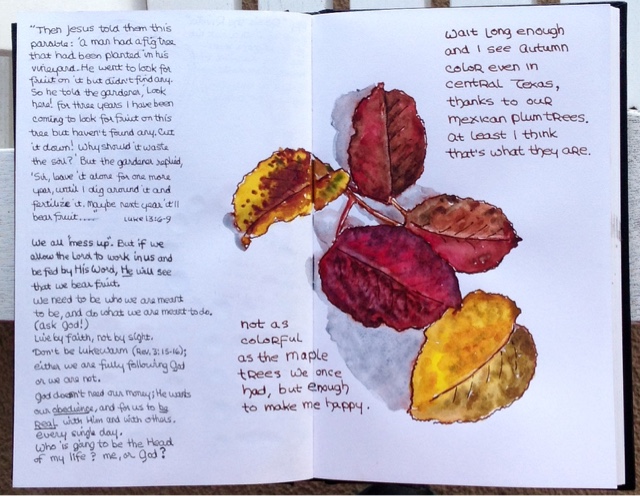 "Then Jesus told them this
parable: 'a man had a fig tree
that had been planted in his
vineyard. He went to look for
fruit on it but didn't find any.
So he told the gardener, 'Look
here! for three years I have been
coming to look for fruit on this
tree but haven't found any. Cut
it down! Why should it waste
the soil?' But the gardener replied,
'Sir, leave it alone for one more
year, until I dig around it and
fertilize it. Maybe next year it'll
bear fruit....."
Luke 13:6-9
We all "mess up". But if we
allow the Lord to work in us and
be fed by His Word, He will see
that we bear fruit.
We need to be who we are meant
to be, and do what we are meant to do.
(ask God!)
Live by faith, not by sight.
Don't be lukewarm (Rev. 3:15-16);
either we are fully following God
or we are not.
God doesn't need our money; He wants
our obedience, and for us to be
REAL with Him and with others.
every single day.
Who is going to be the Head
of my life? me, or God?
Wait long enough
and I see autumn
color even in
central Texas,
thanks to our
mexican plum trees.
at least I think
that's what they are.
not as
colorful
as the maple
trees we once
had, but enough
to make me happy.